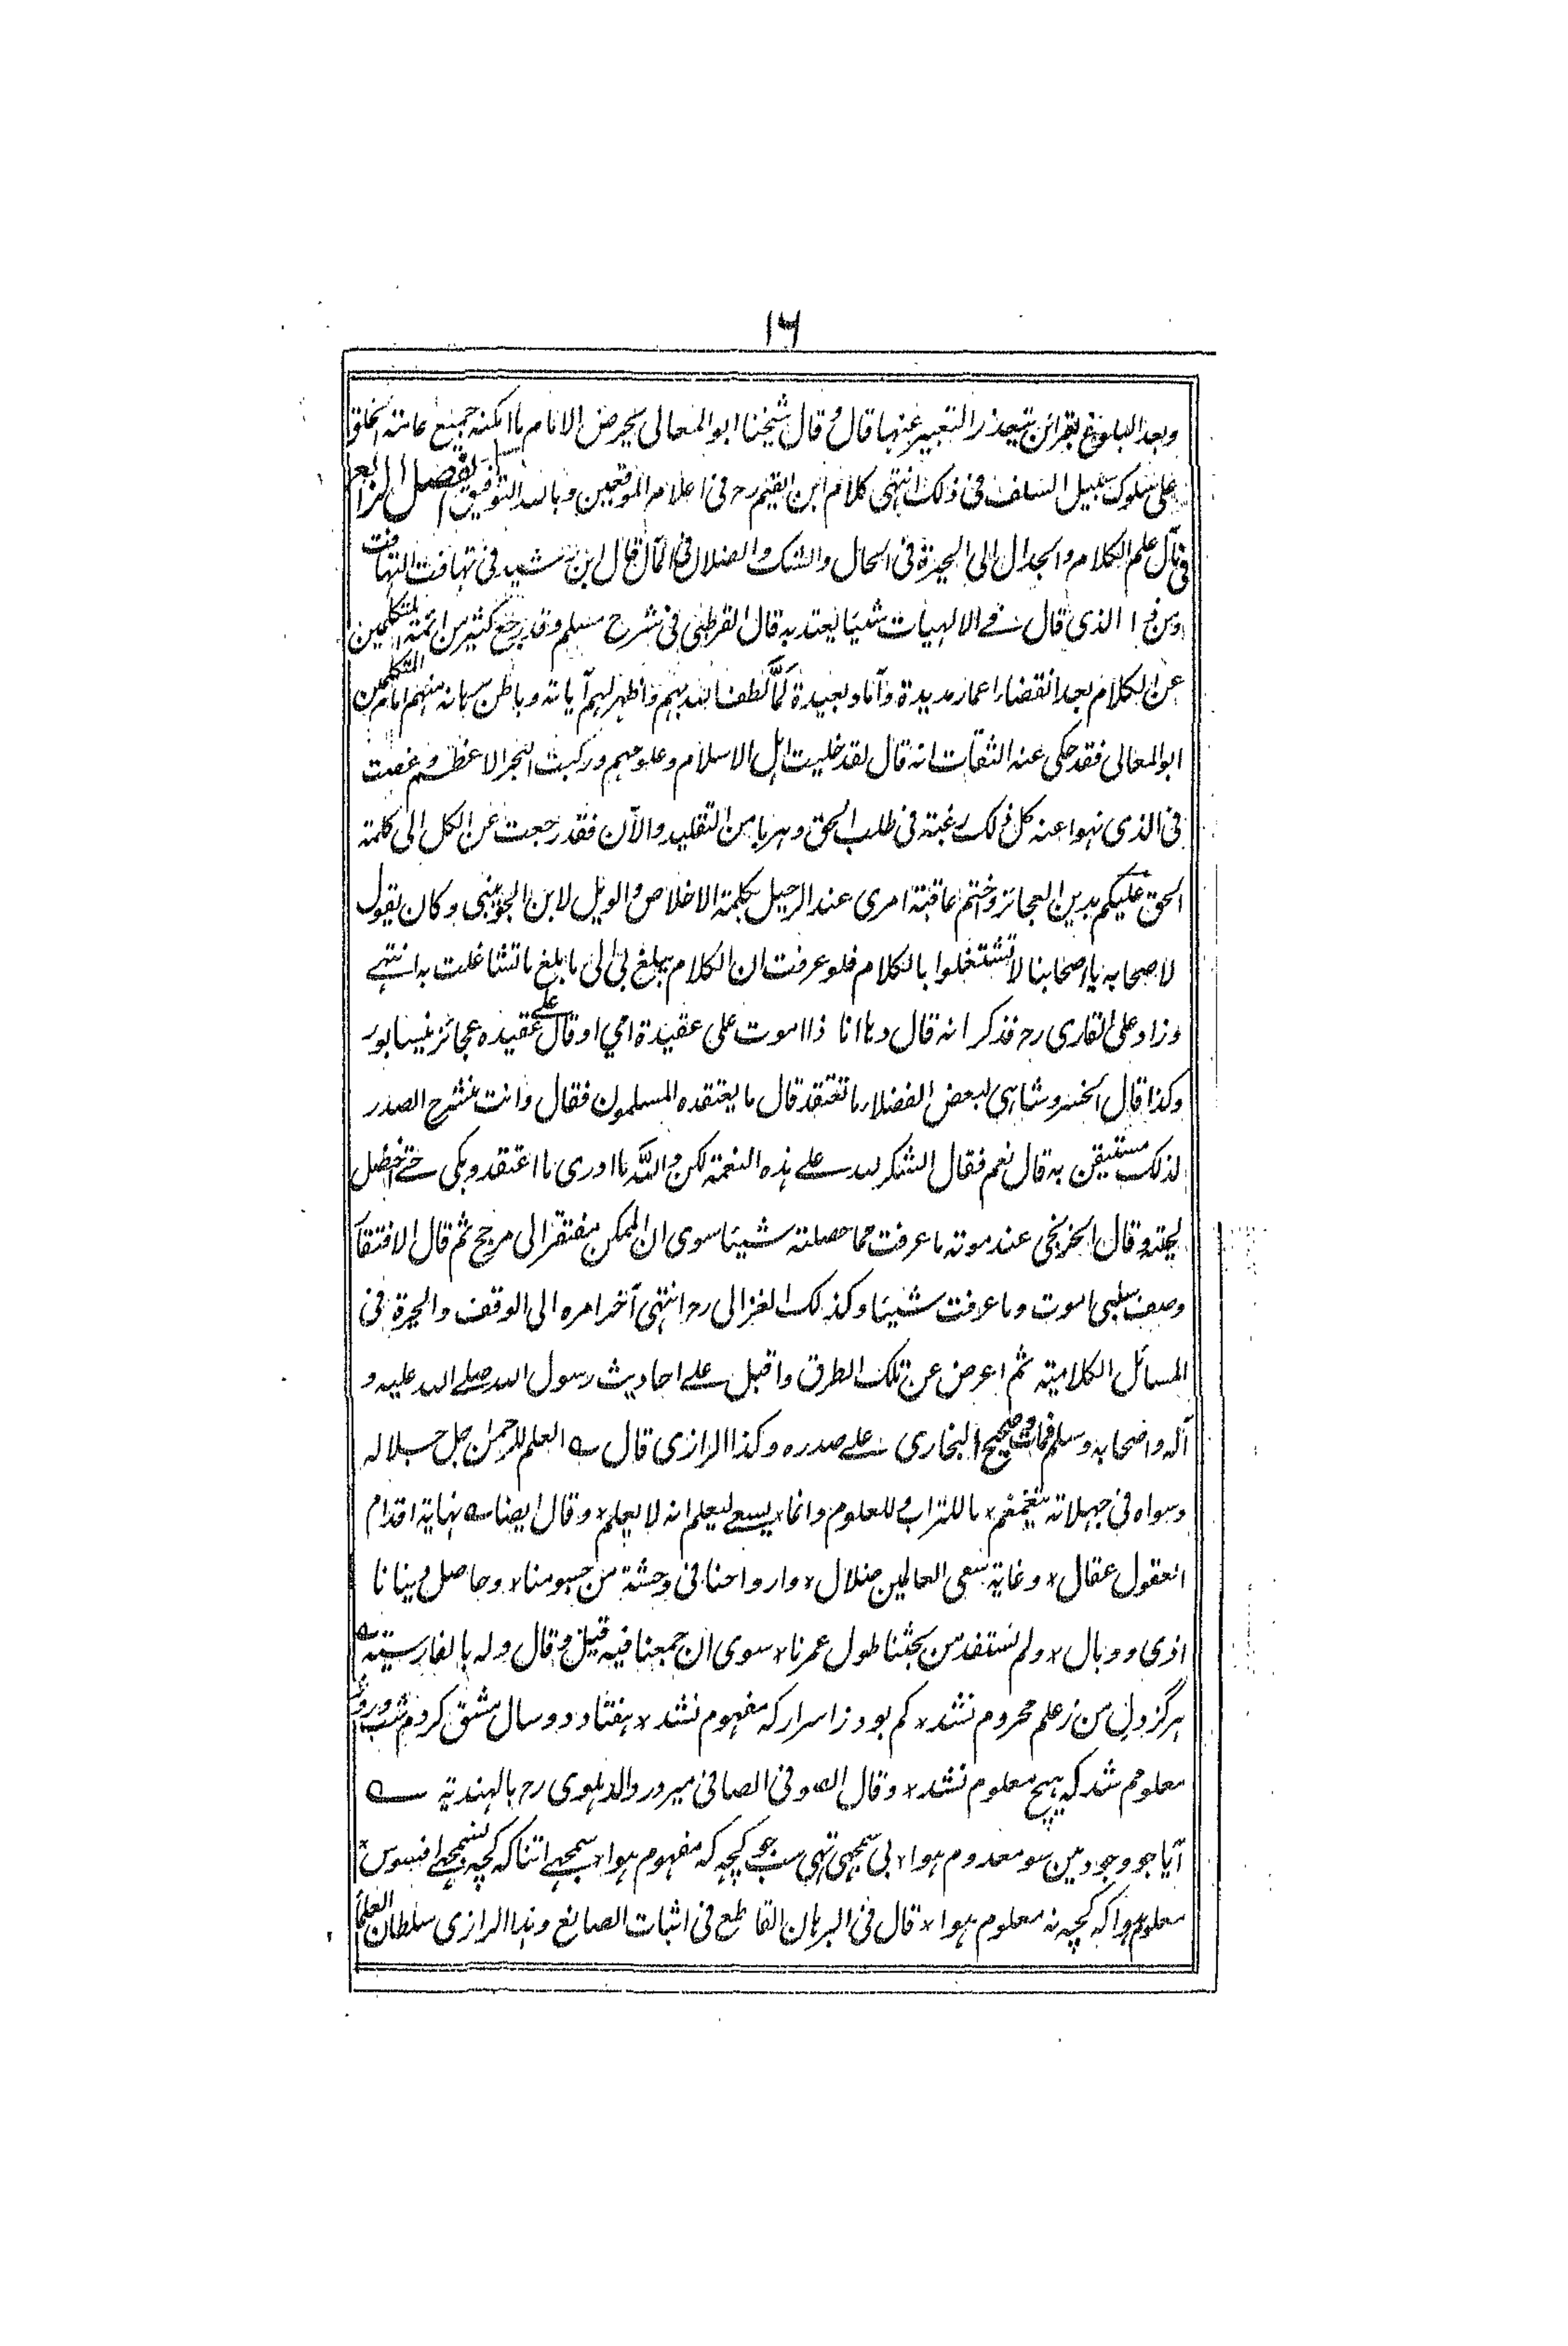 ١٦
وبعد البلوغ بقرائن يتعذر التعبير عنها قال وقال شيخنا ابو المعالى يحرض الامام ما امكنه جميع عامة الخلق
على سلوك سبيل السلف فى ذلك انتهى كلام ابن القيم رح فى اعلام الموقعين وبالله التوفيق الفصل الرابع
فى مآل علم الكلام والجدال الى الحيرة فى الحال والشك والضلال فى المآل قال ابن رشيد فى تهافت التهافت
ومن ذا الذى قال فے الالهيات شيئا يعتد به قال القرطبى فى شرح مسلم وقد رجع كثير من ائمة المتكلمين
عن الكلام بعد انقضاء اعمار مديدة وآماد بعيدة لما لطف الله بهم واظهر لهم آياته وباطن برهانه منهم امام المتكلمين
ابو المعالى فقد حكى عنه الثقات انه قال لقد خليت اهل الاسلام وعلومهم وركبت البحر الاعظم وغصت
فى الذى نهوا عنه كل ذلك رغبة فى طلب الحق وهربا من التقليد والآن فقد رجعت عن الكل الى كلمة
الحق عليكم بدين العجائز واختم عاقبة امرى عند الرحيل بكلمة الاخلاص والويل لابن الجوينى وكان يقول
لاصحابه يا اصحابنا لا تشتغلوا بالكلام فلو عرفت ان الكلام يبلغ بى الى ما بلغ ما تشاغلت به انتهے
وزاد على القارى رح فذكر انه قال وها انا ذا اموت على عقيدة امي او قال علے عقيدة عجائز نيسابور
وكذا قال الخسروشاهى لبعض الفضلاء ما تعتقد قال ما يعتقده المسلمون فقال وانت منشرح الصدر
لذلك مستيقن به قال نعم فقال اشكر لله علے هذه النعمة لكن والله ما ادرى ما اعتقد وبكى حتے اخضل
لحيته وقال الخونجى عند موته ما عرفت مما حصلته شيئا سوى ان الممكن مفتقر الى مرجح ثم قال الافتقار
وصف سلبى اموت وما عرفت شيئا وكذلك الغزالى رح انتهى آخر امره الى الوقف والحيرة فى
المسائل الكلامية ثم اعرض عن تلك الطرق واقبل علے احاديث رسول الله صلے الله عليه و
آله واصحابه وسلم فمات وصحيح البخارى علے صدره وكذا الرازى قال ؎ العلم للرحمن جل جلاله
وسواه فى جهلاته يتغمغم * ما للتراب وللعلوم وانما * يسعے ليعلم انه لا يعلم * وقال ايضا ؎ نهاية اقدام
العقول عقال * وغاية سعى العالمين ضلال * وارواحنا فى وحشة من جسومنا * وحاصل دنيانا
اذى ووبال * ولم نستفد من بحثنا طول عمرنا * سوى ان جمعنا فيه قيل وقال وله بالفارسية ؎
هرگز دل من ز علم محروم نشد * كم بود ز اسرار كه مفهوم نشد * هفتاد و دو سال مشق كردم شب و روز
معلومم شد كه هيچ معلوم نشد * وقال الصوفى الصافى مير درد الدهلوى رح بالهندية ؎
آيا جو وجود مين سو معدوم هوا * بى سمجهى تهى سب جو كچهه كه مفهوم هوا * سمجهے اتنا كه كچهه نسمجهے افسوس *
معلوم هوا كه كچهه نه معلوم هوا * قال فى البرهان القاطع فى اثبات الصانع وهذا الرازى سلطان العلماء